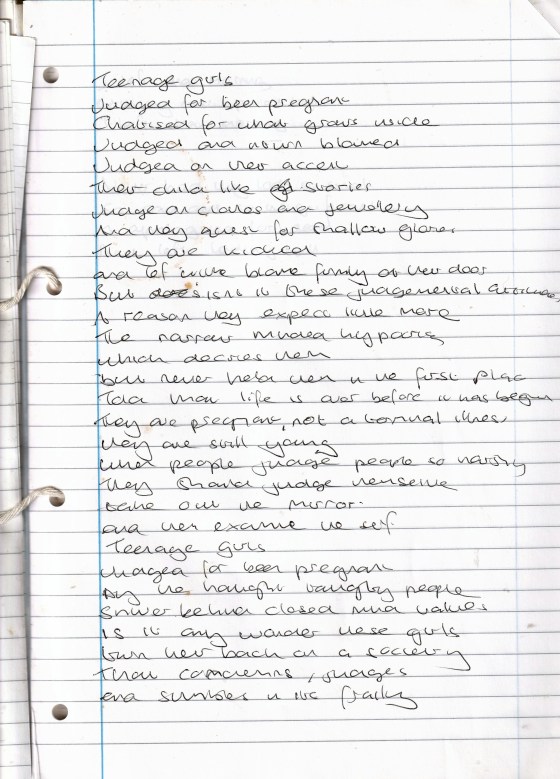 Teenage girls
Judged for been pregnant
Chastised for what grows inside
Judged and blamed
Judged on their accent
Their child like stories
Judge on clothes and jewellery
And they quest for shallow glories
They are kicked
and left with blame firmly at their door
But isnt it these judgemental attitudes
A reason they expect little more
The narrow minded hypocrisy
which decries them
but never helps them in the first place
Told that life is over before it has begun
They are pregnant, not a terminal illness
they are still young
when people judge people so harshly
They should judge themselve
take out the mirror.
and then examine the self.
Teenage girls
Judged for been pregnant
By the haughty people
behind closed mind values
is it any wonder these girls
turn their back on a society
That condemns, judges
and stumbles in its frailty